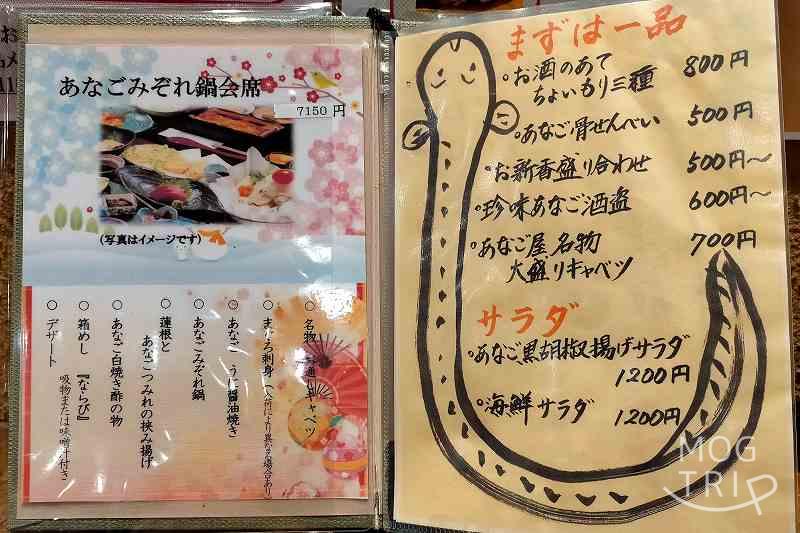 あなごみぞれ鍋会席
7150 円
(写真はイメージです)
○ 名物 通しキャベツ
○ まぐろ刺身(入荷により異なる場合あり)
○ あなご うに醤油焼き
○ あなごみぞれ鍋
○ 蓮根と
あなごつみれの挟み揚げ
○ あなご白焼き酢の物
○ 箱めし 『ならび』
吸物または味噌汁付き
○ デザート
まずは一品
お酒のあて
ちょいもり三種 800円
あなご骨せんべい 500円
お新香盛り合わせ 500円～
珍味あなご酒盗 600円～
あなご屋名物
大盛りキャベツ 700円
サラダ
あなご黒胡椒揚げサラダ
1200円
海鮮サラダ 1200円
MOG
TRIP